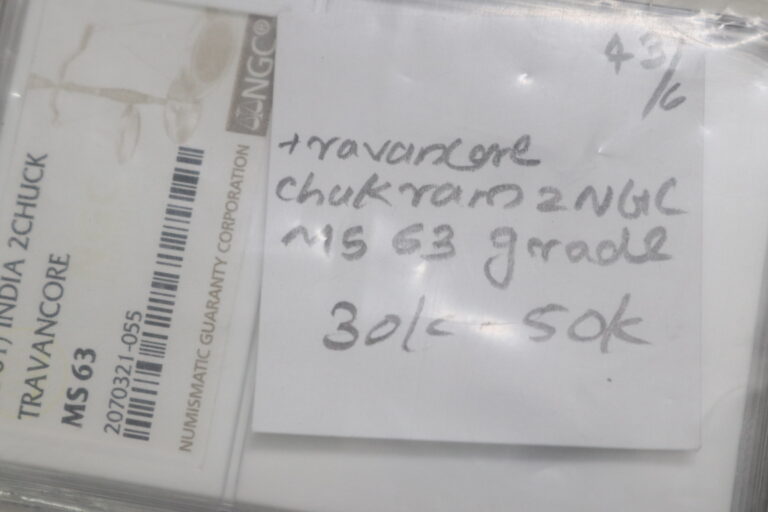 INDIA 2CHUCK
TRAVANCORE
MS 63
2070321-055
NUMISMATIC GUARANTY CORPORATION
NGC®
43/
/6
travancore
chakram 2 NGC
MS 63 grade
30k - 50k